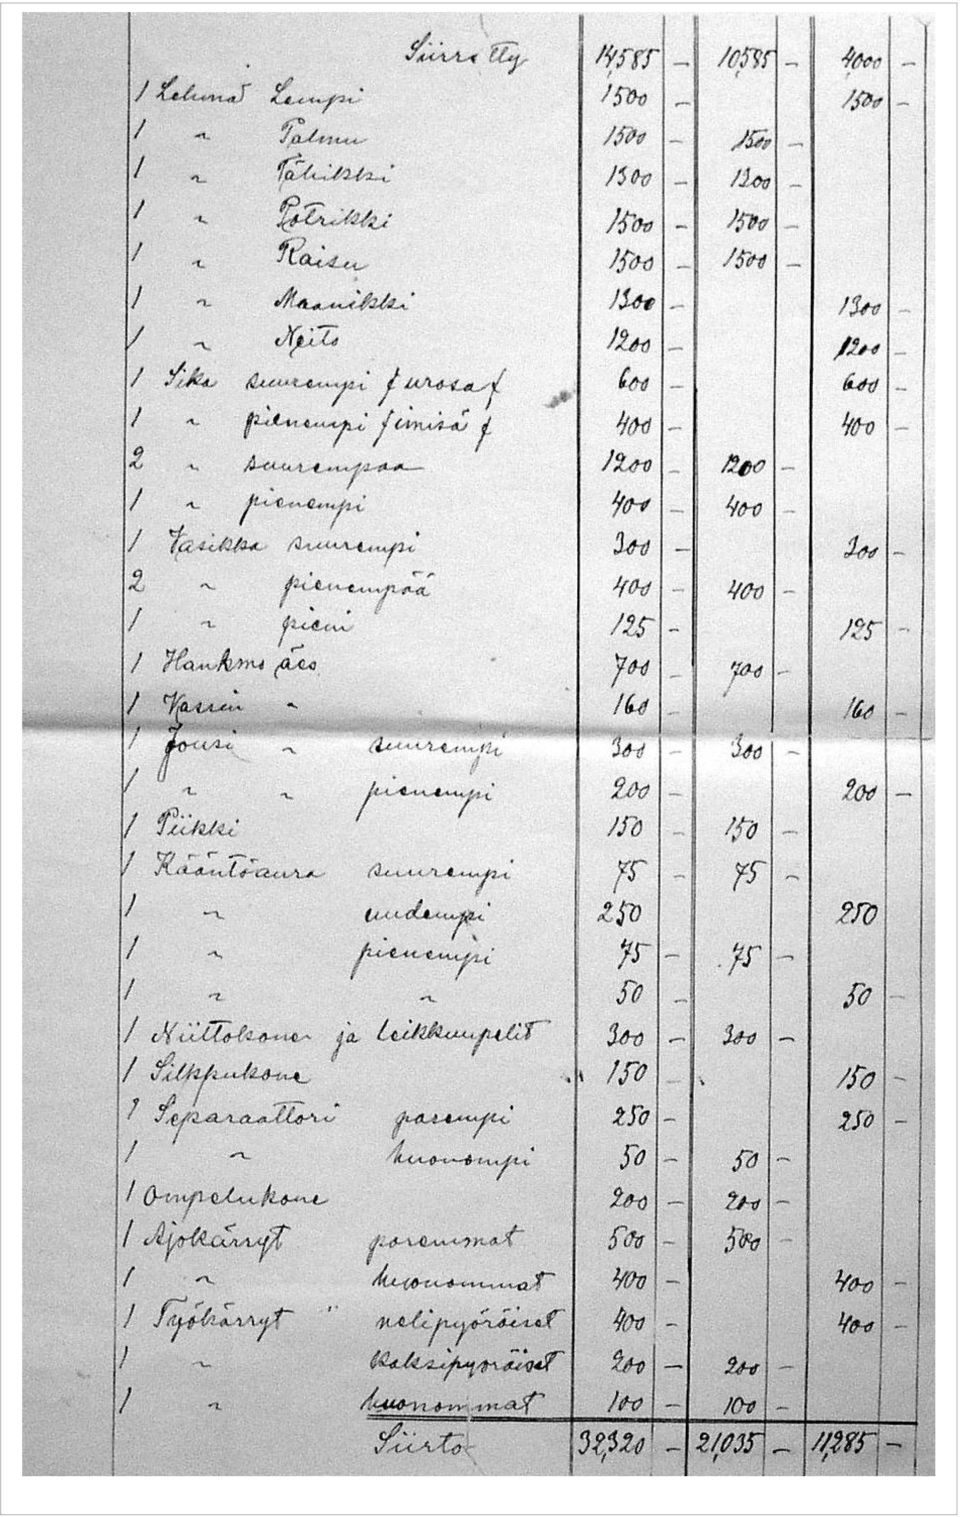 Siirretty 14,585 — 10,585 — 4,000 —
1 Lehmä Lempi 1500 — 1500 —
1 " Palmu 1500 — 1500 —
1 " Tähikki 1300 — 1300 —
1 " Pötrikki 1500 — 1500 —
1 " Raisu 1500 — 1500 —
1 " Maanikki 1300 — 1300 —
1 " Neito 1200 — 1200 —
1 Sika suurempi (urosa) 600 — 600 —
1 " pienempi (imisä) 400 — 400 —
2 " suurempaa 1200 — 1200 —
1 " pienempi 400 — 400 —
1 Vasikka suurempi 300 — 300 —
2 " pienempää 400 — 400 —
1 " pieni 125 — 125 —
1 Hankmo äes 700 — 700 —
1 Kassin " 160 — 160 —
1 Jousi " suurempi 300 — 300 —
1 " " pienempi 200 — 200 —
1 Piikki 150 — 150 —
1 Kääntöaura suurempi 75 — 75 —
1 " uudempi 250 250
1 " pienempi 75 — 75 —
1 " " 50 — 50 —
1 Niittokone ja leikkuupelit 300 — 300 —
1 Silppukone 150 — 150 —
1 Separaattori parempi 250 — 250 —
1 " huonompi 50 — 50 —
1 Ompelukone 200 — 200 —
1 Ajokärryt paremmat 500 — 500 —
1 " huonommat 400 — 400 —
1 Työkärryt " nelipyöräiset 400 — 400 —
1 " kaksipyöräiset 200 — 200 —
1 " huonommat 100 — 100 —
Siirto 32,320 — 21,035 — 11,285 —